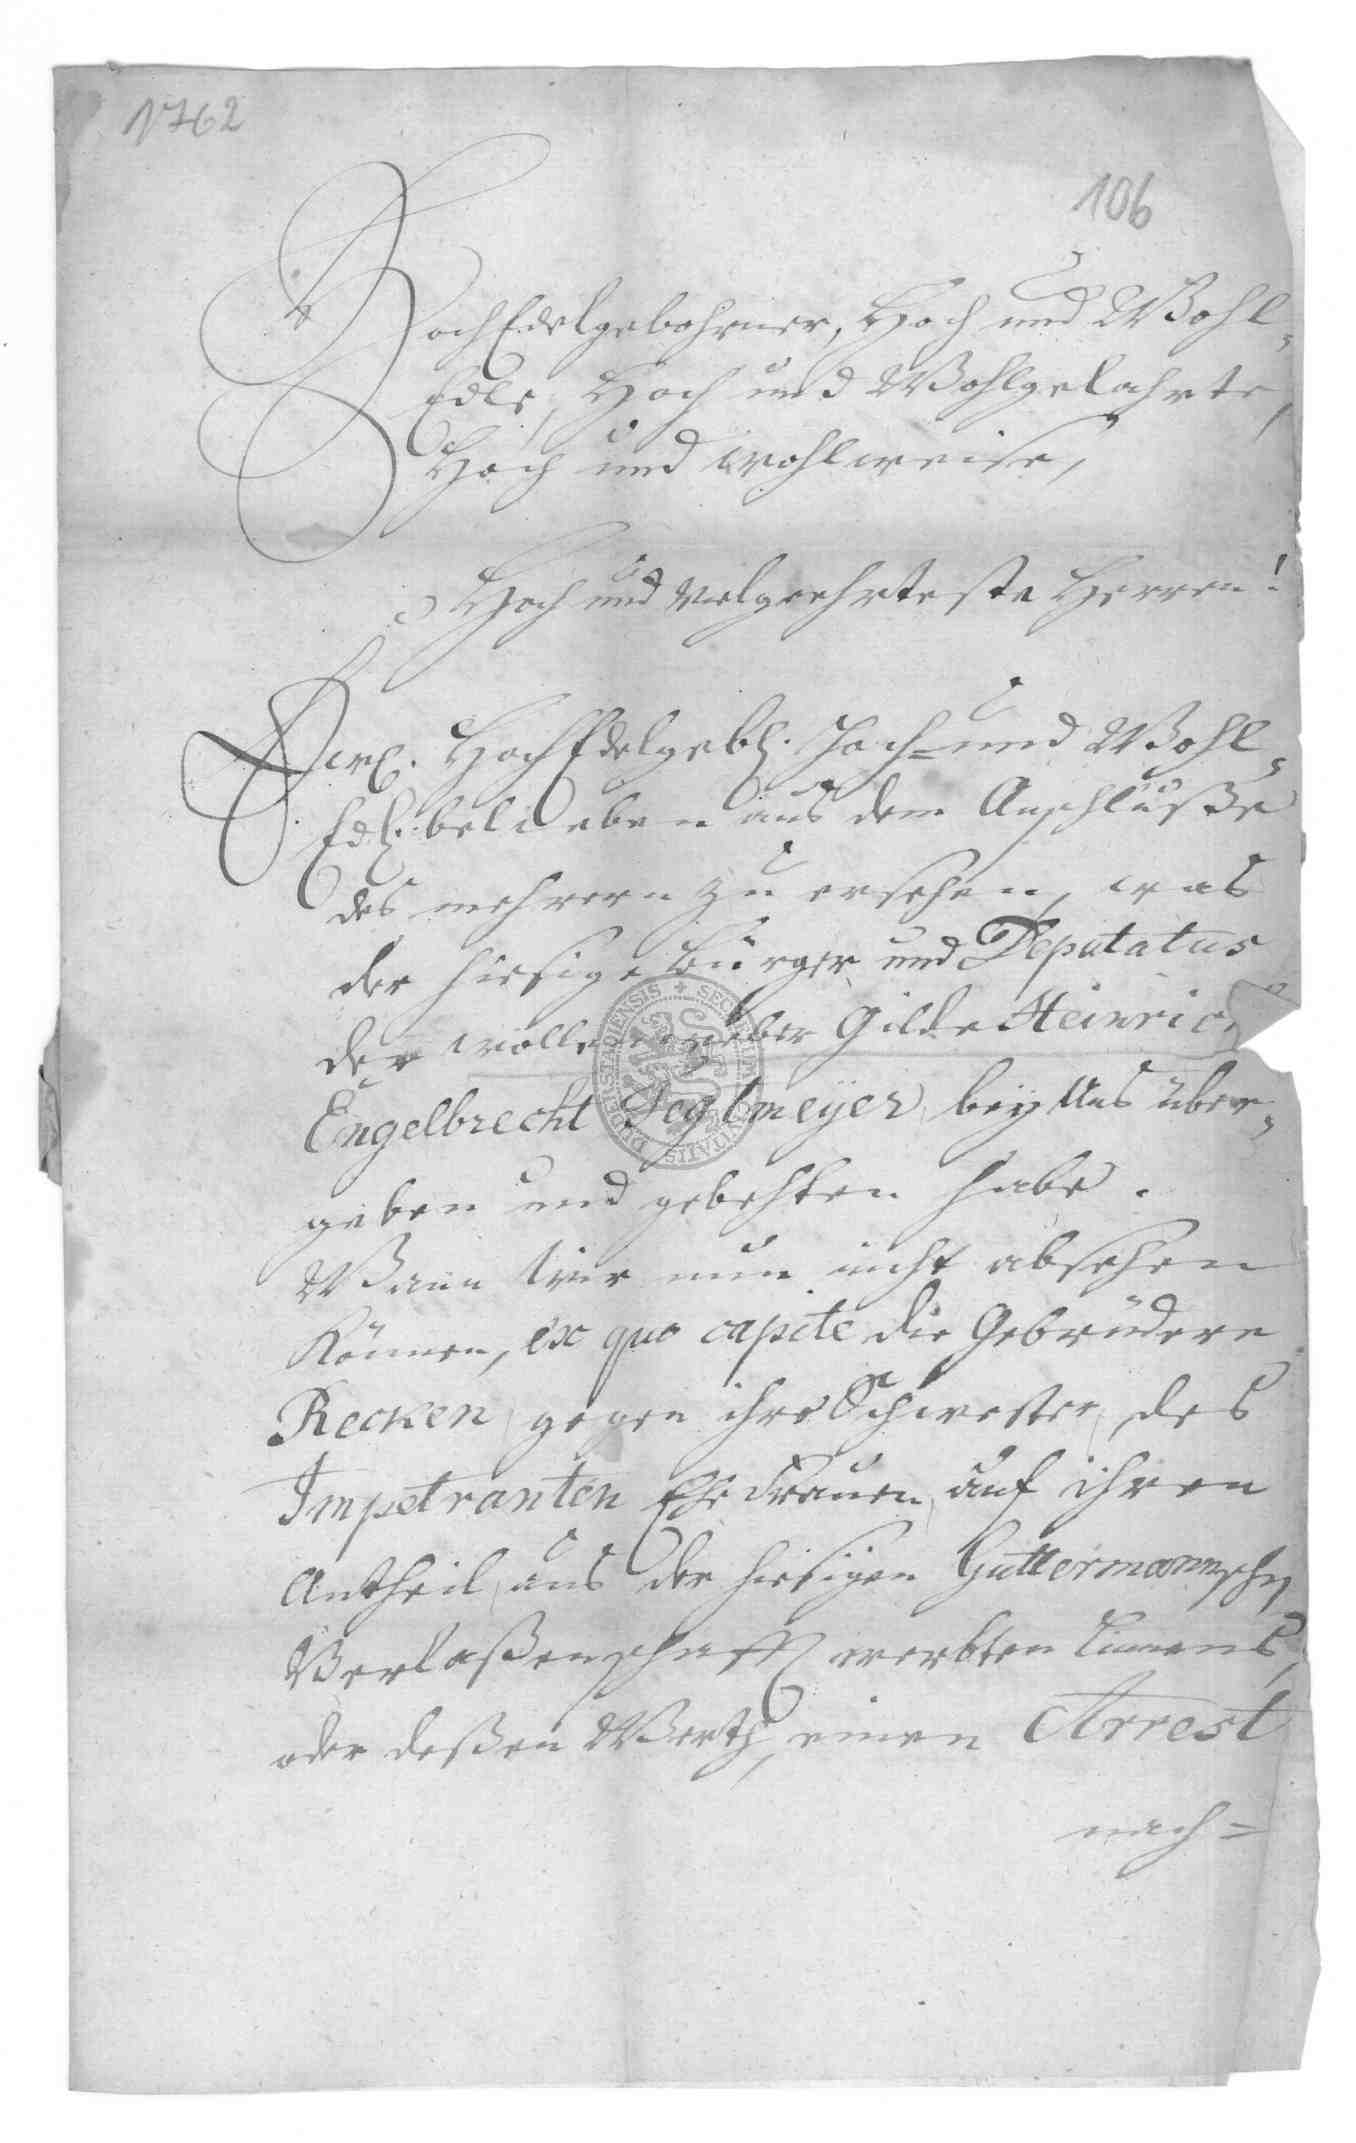 1762
106
HochEdelgebohrner, Hoch und Wohl-
Edle, Hoch und Wohlgelahrte,
Hoch und wohlweise,
Hoch und Vielgeehrteste Herren!
Ewl. HochEdelgebl. Hoch- und Wohl-
Edl. belieben aus dem Anschlusse
des mehrern zu ersehen, was
der hiesige Bürger und Deputatus
der wollenweber Gilde Heinrich
Engelbrecht Degtmeyer bey Uns über-
geben und gebehten habe.
Wann wir nun nicht absehen
Können, ex quo capite die Gebrüdere
Recken gegen ihre Schwester, des
Impetranten EheFrauen, auf ihren
Antheil, aus der hiesigen Guttermannschen
Verlaßenschafft ererbten
oder deßen Werth, einen Arrest
nach-
SECRETUM CIVITATIS DUDERSTADIENSIS